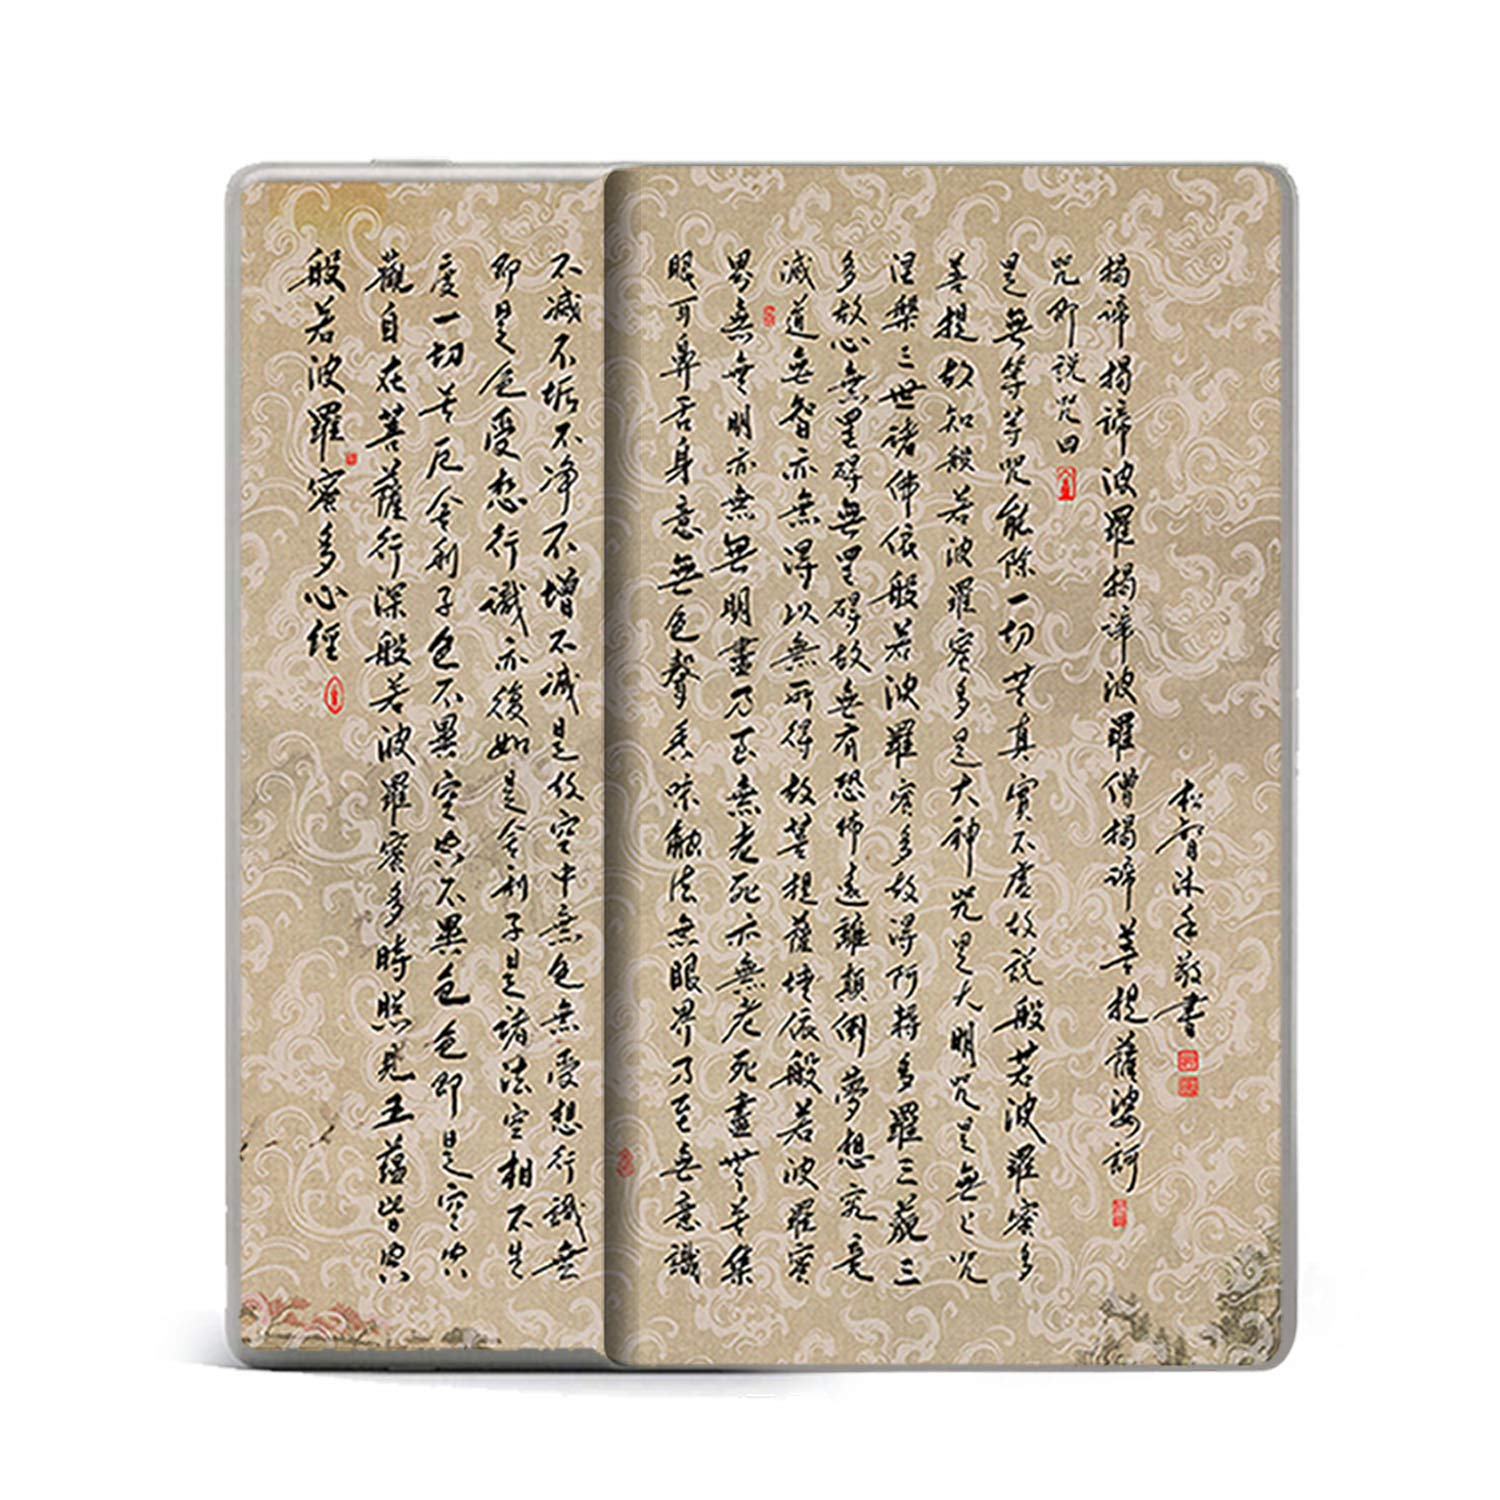 般若波羅蜜多心經
觀自在菩薩行深般若波羅蜜多時照見五蘊皆空
度一切苦厄舍利子色不異空空不異色色即是空空
即是色受想行識亦復如是舍利子是諸法空相不生
不滅不垢不净不增不減是故空中無色無受想行識無
眼耳鼻舌身意無色聲香味觸法無眼界乃至無意識
界無無明亦無無明盡乃至無老死亦無老死盡無苦集
滅道無智亦無得以無所得故菩提薩埵依般若波羅蜜
多故心無罣礙無罣礙故無有恐怖遠離顛倒夢想究竟
涅槃三世諸佛依般若波羅蜜多故得阿耨多羅三藐三
菩提故知般若波羅蜜多是大神咒是大明咒是無上咒
是無等等咒能除一切苦真實不虛故說般若波羅蜜多
咒即說咒曰
揭諦揭諦波羅揭諦波羅僧揭諦菩提薩婆訶
松沐手敬書